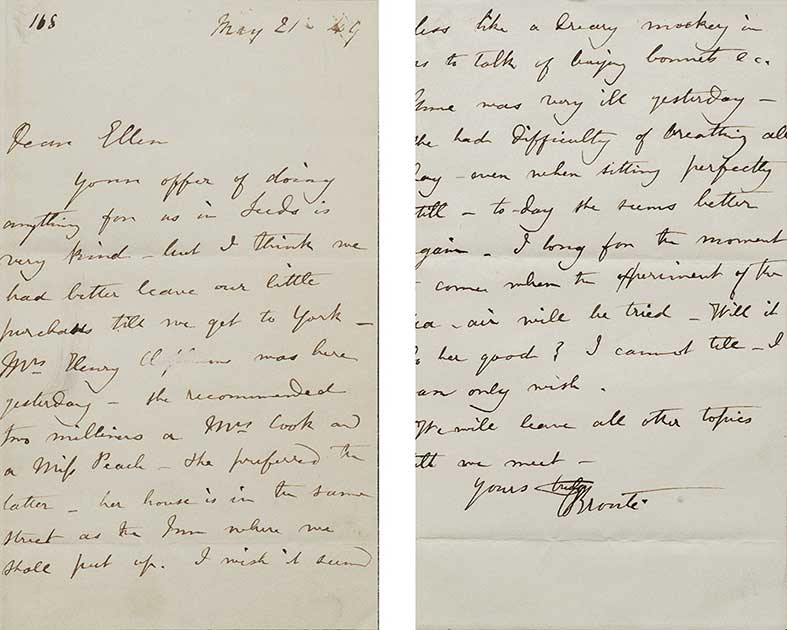 168
May 21st 49
Dear Ellen
Your offer of doing
anything for us in Leeds is
very kind - but I think we
had better leave our little
purchases till we get to York -
Mrs Henry was here
yesterday - she recommended
two milliners a Mrs Cook and
a Miss Peach - she preferred the
latter - her house is in the same
street as the Inn where we
shall put up. I wish it seemed
less like a dreary mockery in
us to talk of buying bonnets &c.
Anne was very ill yesterday -
she had difficulty of breathing all
day - even when sitting perfectly
still - to-day she seems better
again. I long for the moment
to come when the experiment of the
sea-air will be tried - Will it
do her good? I cannot tell - I
can only wish.
We will leave all other topics
till we meet -
Yours truly
CBrontë